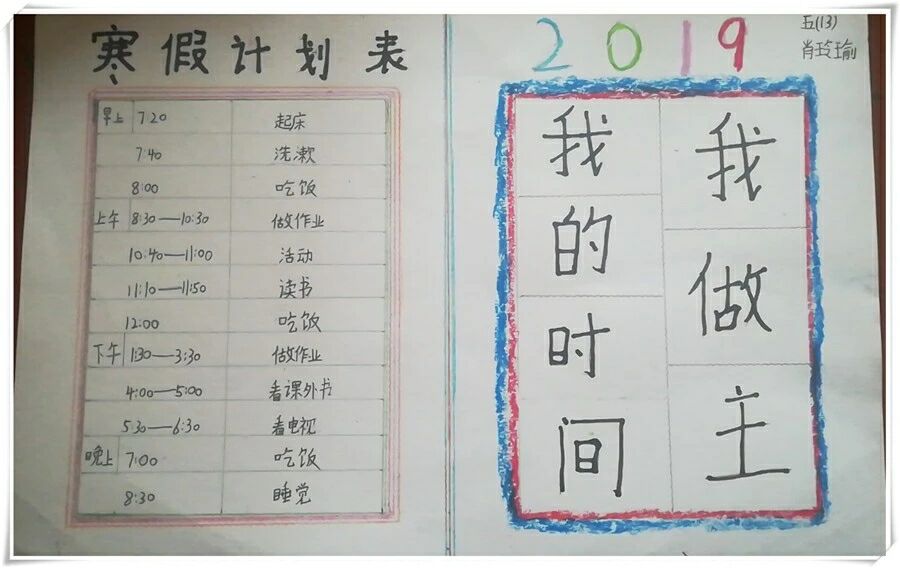 寒假计划表
早上 7:20 起床
7:40 洗漱
8:00 吃饭
上午 8:30—10:30 做作业
10:40—11:00 活动
11:10—11:50 读书
12:00 吃饭
下午 1:30—3:30 做作业
4:00—5:00 看课外书
5:30—6:30 看电视
晚上 7:00 吃饭
8:30 睡觉
2019
五(13)
肖玲瑜
我的时间
我做主